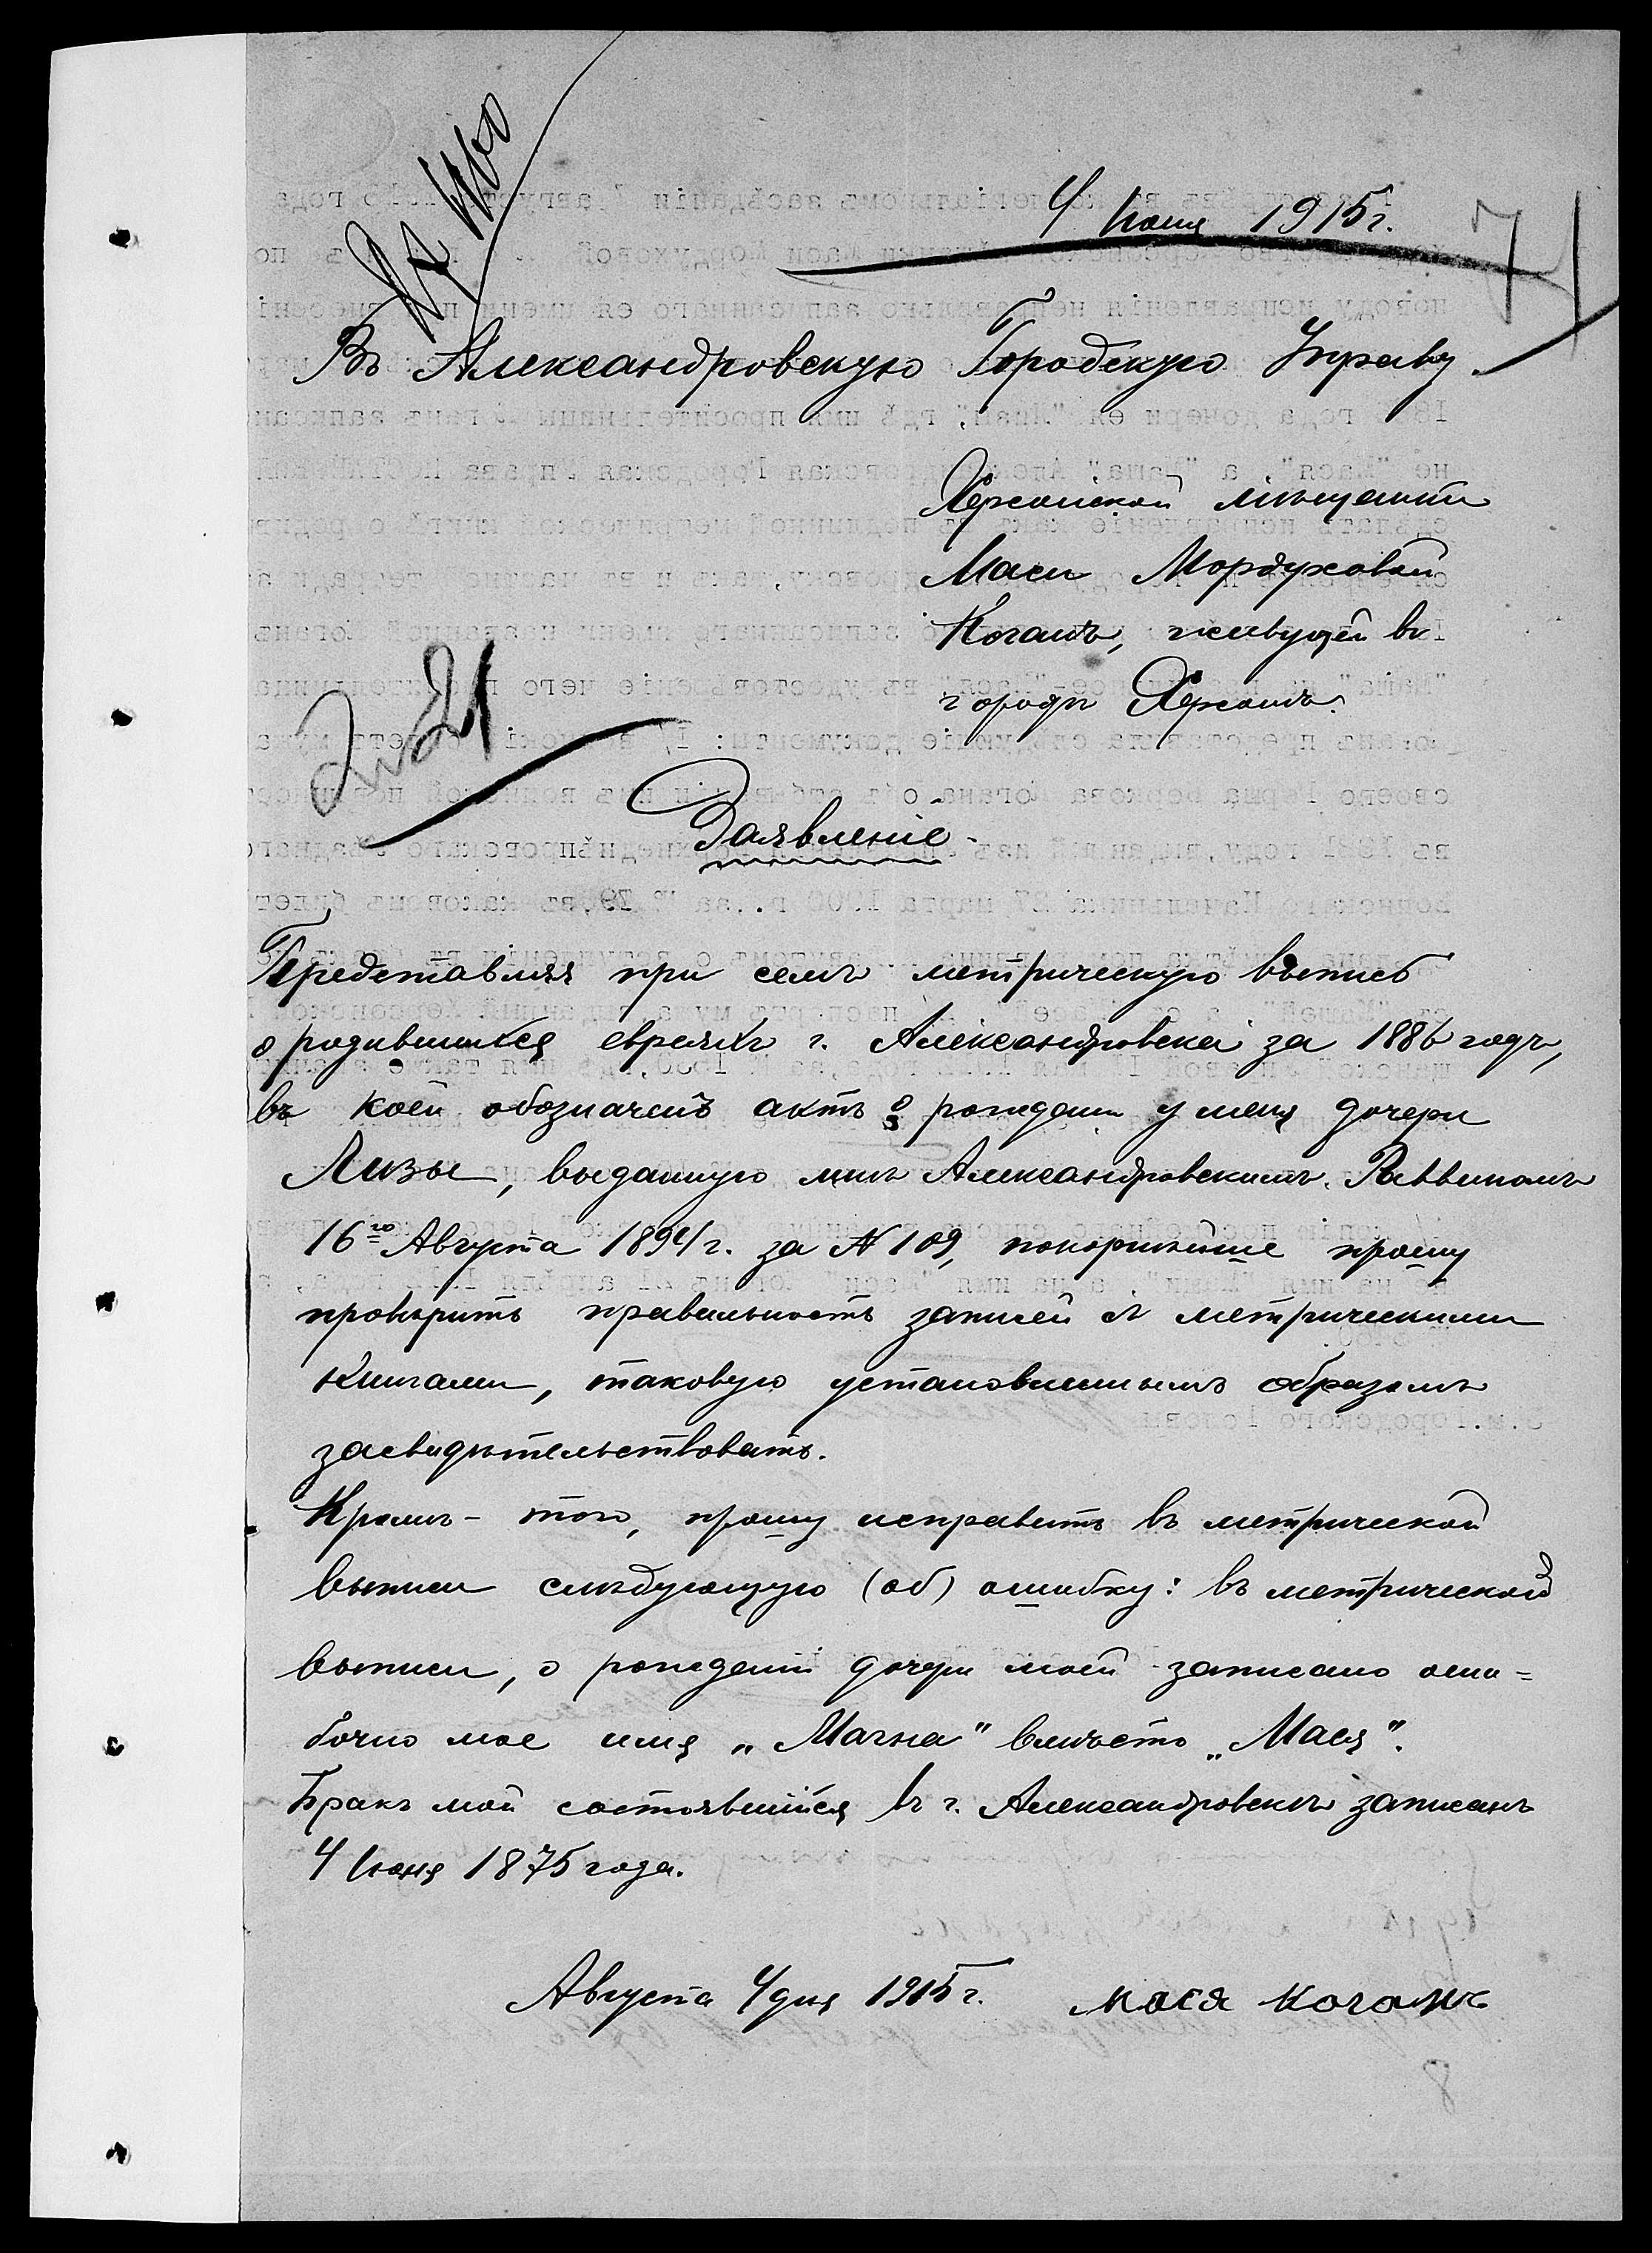 4 Іюня 1915 г.
74
Въ Александровскую Городскую Управу.
Херсонской мѣщанки
Маси Мордуховой
Коганъ, живущей въ
городѣ Херсонѣ.
Заявленіе
Представляя при семъ метрическую выпись
о родившихся евреяхъ г. Александровска за 1886 годъ,
въ коей обозначенъ актъ о рождении у меня дочери
Лизы, выданную мнѣ Александровскимъ Раввиномъ
16го Августа 1894 г. за № 109, покорнѣйше прошу
провѣрить правильность записей съ метрическими
книгами, таковую установленнымъ образомъ
засвидѣтельствовать.
Кромѣ-того, прошу исправить въ метрической
выписи слѣдующую (об) ошибку: въ метрической
выписи, о рожденіи дочери моей записано оши=
бочно мое имя „Магна" вмѣсто „Мася".
Бракъ мой состоявшійся въ г. Александровскѣ записанъ
4 Іюня 1875 года.
Августа 4 дня 1915 г. мася коганъ